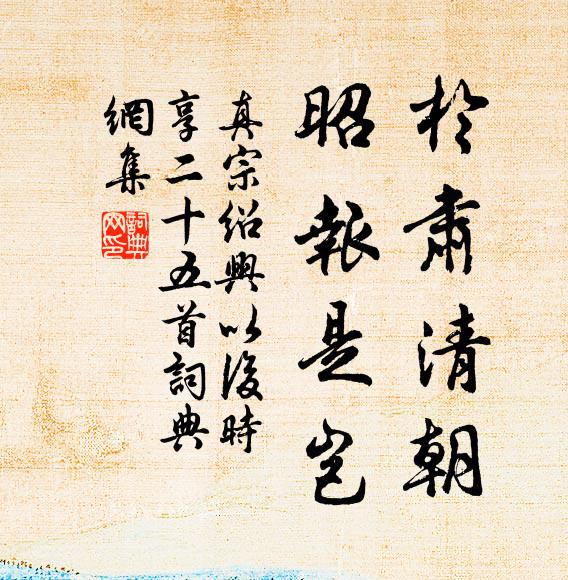 於肅清朝
昭報是岂
真宗紹興以後時
享二十五首詞典
網集
詞典
网印